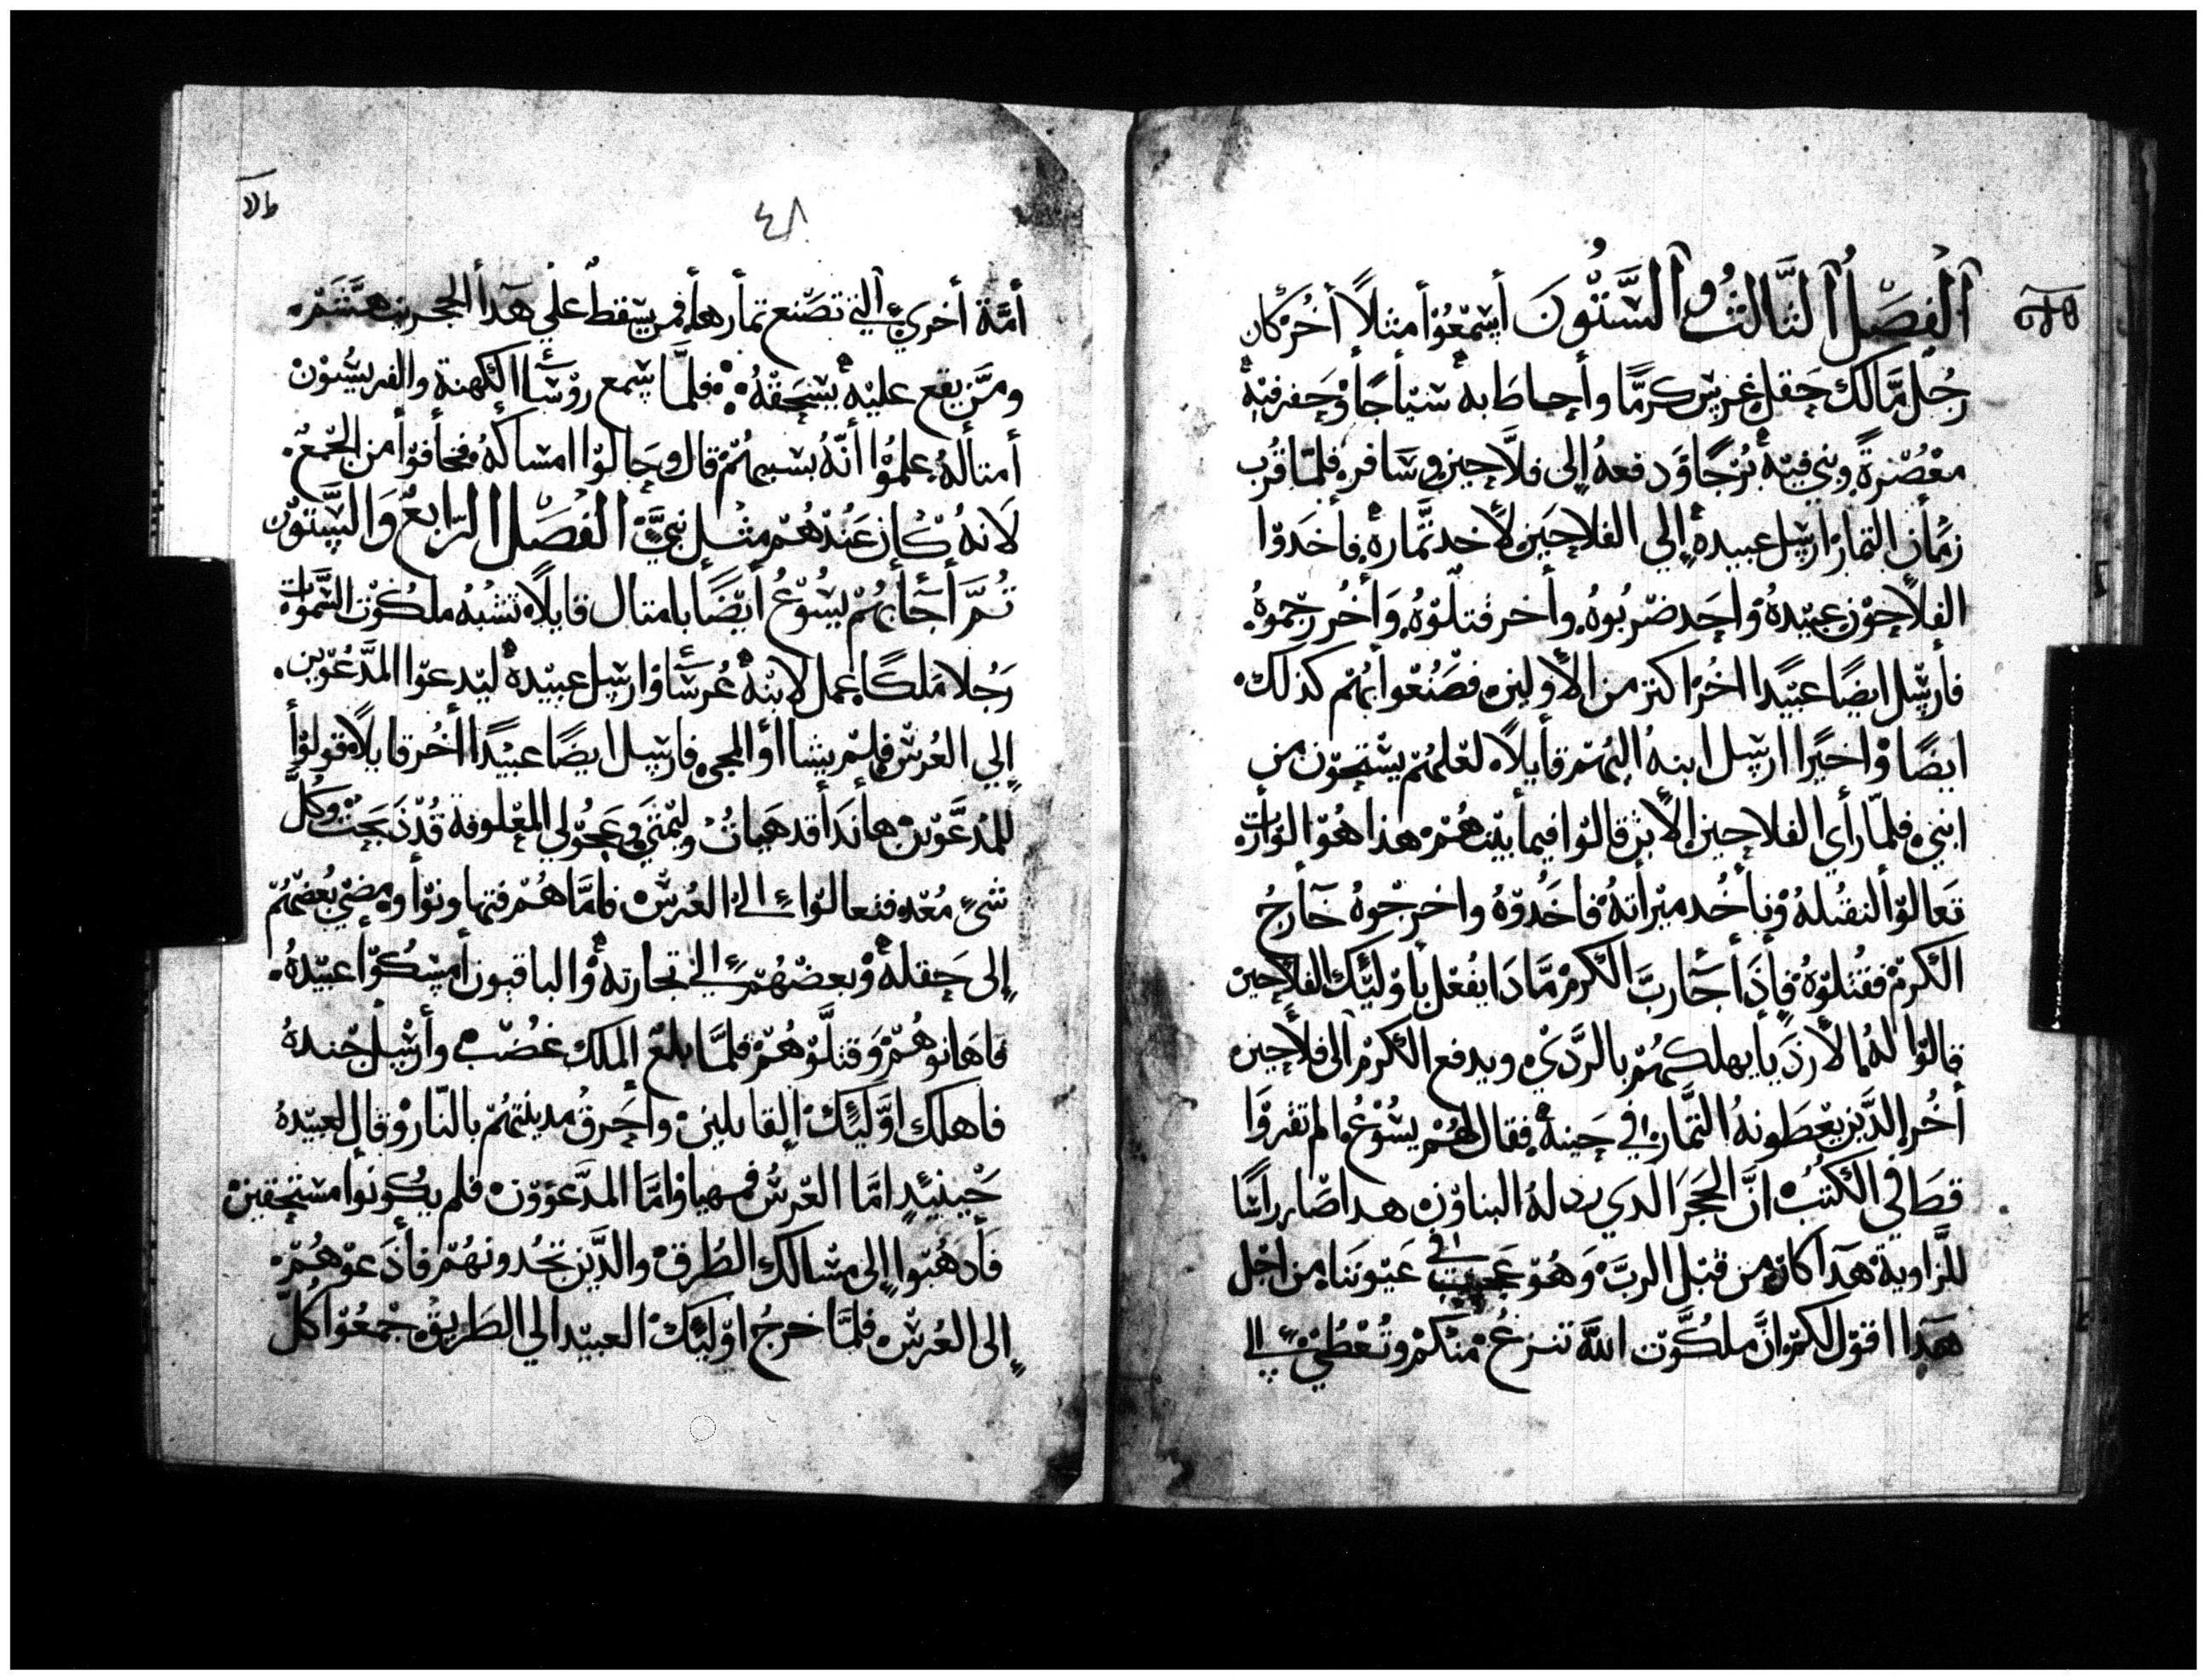 اَلْفَصْلُ اَلثَّالِثُ وَاَلسَّتُّوْنَ أَسْمَعُوْا مثلاً أخُرْ كان
رجُل مَّالك حَقل غرس كرمًا وأحاطَ به سْيَاجًا وْحَفر فيْه
معْصُرةً وبني فيْه بُرْجًا وَدفعهُ إلى فلاَّحين وسَافر فلمّا قُرب
زمَان التمار ارسل عبيدهْ إلي الفلاحَين لأخد تَّمارهْ فأخدوْا
الفلاَّحوْن عبيْدهُ وْاحَد ضرْبُوهُ وأخر قتلْوّهُ وَأخُر رجموهُ
فأرسل ايضًا عبيْدًا اخُرْ اكتر من الأولين فصَنُعُوا بهُمْ كذلك
ايضًا وْاخيْرًا ارسل ابنهُ اليْهُمْ قأيلاً لعْلهُمْ يسْتحوْن من
ابني فلمّا رأي الفلاحين الأبن قالوْا فيما بيْنهُمْ هذا هُوْ الوْارت
تَعالوْا لنقتله وْنأخُد ميْرأتهُ فاخَدُوْهُ واخرجْوهُ خَأرجُ
الكرمْ فقتلوْهُ فأذَا جَا ربَّ الكرمْ مَّادَا يفْعل بأوْليْك الفلاحين
قالوْا لهُ الأرذيا يهلكهُمْ بالرَّدي ويدفع الكرمْ الى فلأحين
أخُر الدَّين يعْطَونهُ التَّمار في حَينهْ فقال لهُمْ يسُوْعُ الم تقروْا
قطَ في الكتُبْ انَّ الحَجرَ الدي رذلهُ البناوْن هدا صَار رأسًا
للزَّاويةْ هَدَا كان من قبْل الربَّ وَهُوْ عَجيب في عَيوْننَا من اجْل
هَدا اقوْل لكمْ انَّ ملكُوْت اللهَ تنزعْ منْكمْ وتُعْطَي إلي
٤٨
أمَّة أخري اَلتي تصْنع تمأرها فمن يسْقط علي هَدا الحجر يتهشَّمْ
ومَّن يقع عليْهْ يسْحَقهُ فلمَّا سْمع روْسَّا الكهنة والفريسُيوْن
أمتاله علمُوْا انَّهُ بسبهُمْ قال وحَاولوْا امساكهُ فخافوْا من الجْمعْ
لَانهُ كان عَنْدهُمْ مثل نبيَّ الفصْل الرّابعْ وَالسِّتوْن
تُمَّ أجَابهُمْ يسُوْعُ أيْضًا بامتال قايلاً تشْبهُ ملكُوْت السَّموَات
رَجُلا مَلكًا عمل لابنْهْ عُرسًا وْارسل عبيْدهْ ليْدعوْا المدَّعُوْين
إلي العُرسْ فلمْ يشاأوْا المجي فارسل ايضًا عبيْدًا أخُر قايلاً قولوْا
للمُدعَّوْين هأنَدَا قد هَيَاتُ وليْمتي وعَجُوْلي المعْلوفة قُدْ ذبَحَتْ وكُلَّ
شيْ مُعْد فتعالوْا إلي العُرسْ فامَّا هُمْ فتهاونوْا ومضي بُعْضهُمْ
إلى حَقلهْ وْبعضهُمْ إلي تجارتهْ وْالباقيون أمسْكوْا عبيْدهُ
فاهَانوهُمْ وَقتلَّوْهُمْ فلمَّا بلغ الملك غضُبْ وأرسْل جْندهُ
فاهلك اوَّليْك القاتلين وأحَرقُ مدينتهُمْ بالنَّار وْقال لعبيْدهُ
حَيْنيْدٍ امَّا العْرسْ فمهيا وْامَّا المدَّعوْوْن فلم يكُونوْا مستَحقين
فَأدهُبْوا إلى مسَالك الطُرقْ والدَّين تجُدونهُمْ فأدعوْهُمْ
إلى العُرسْ فلمَّا خرجُ اوْليْك العبيْد الي الطَريقْ جْمعُوْا كُلَّ